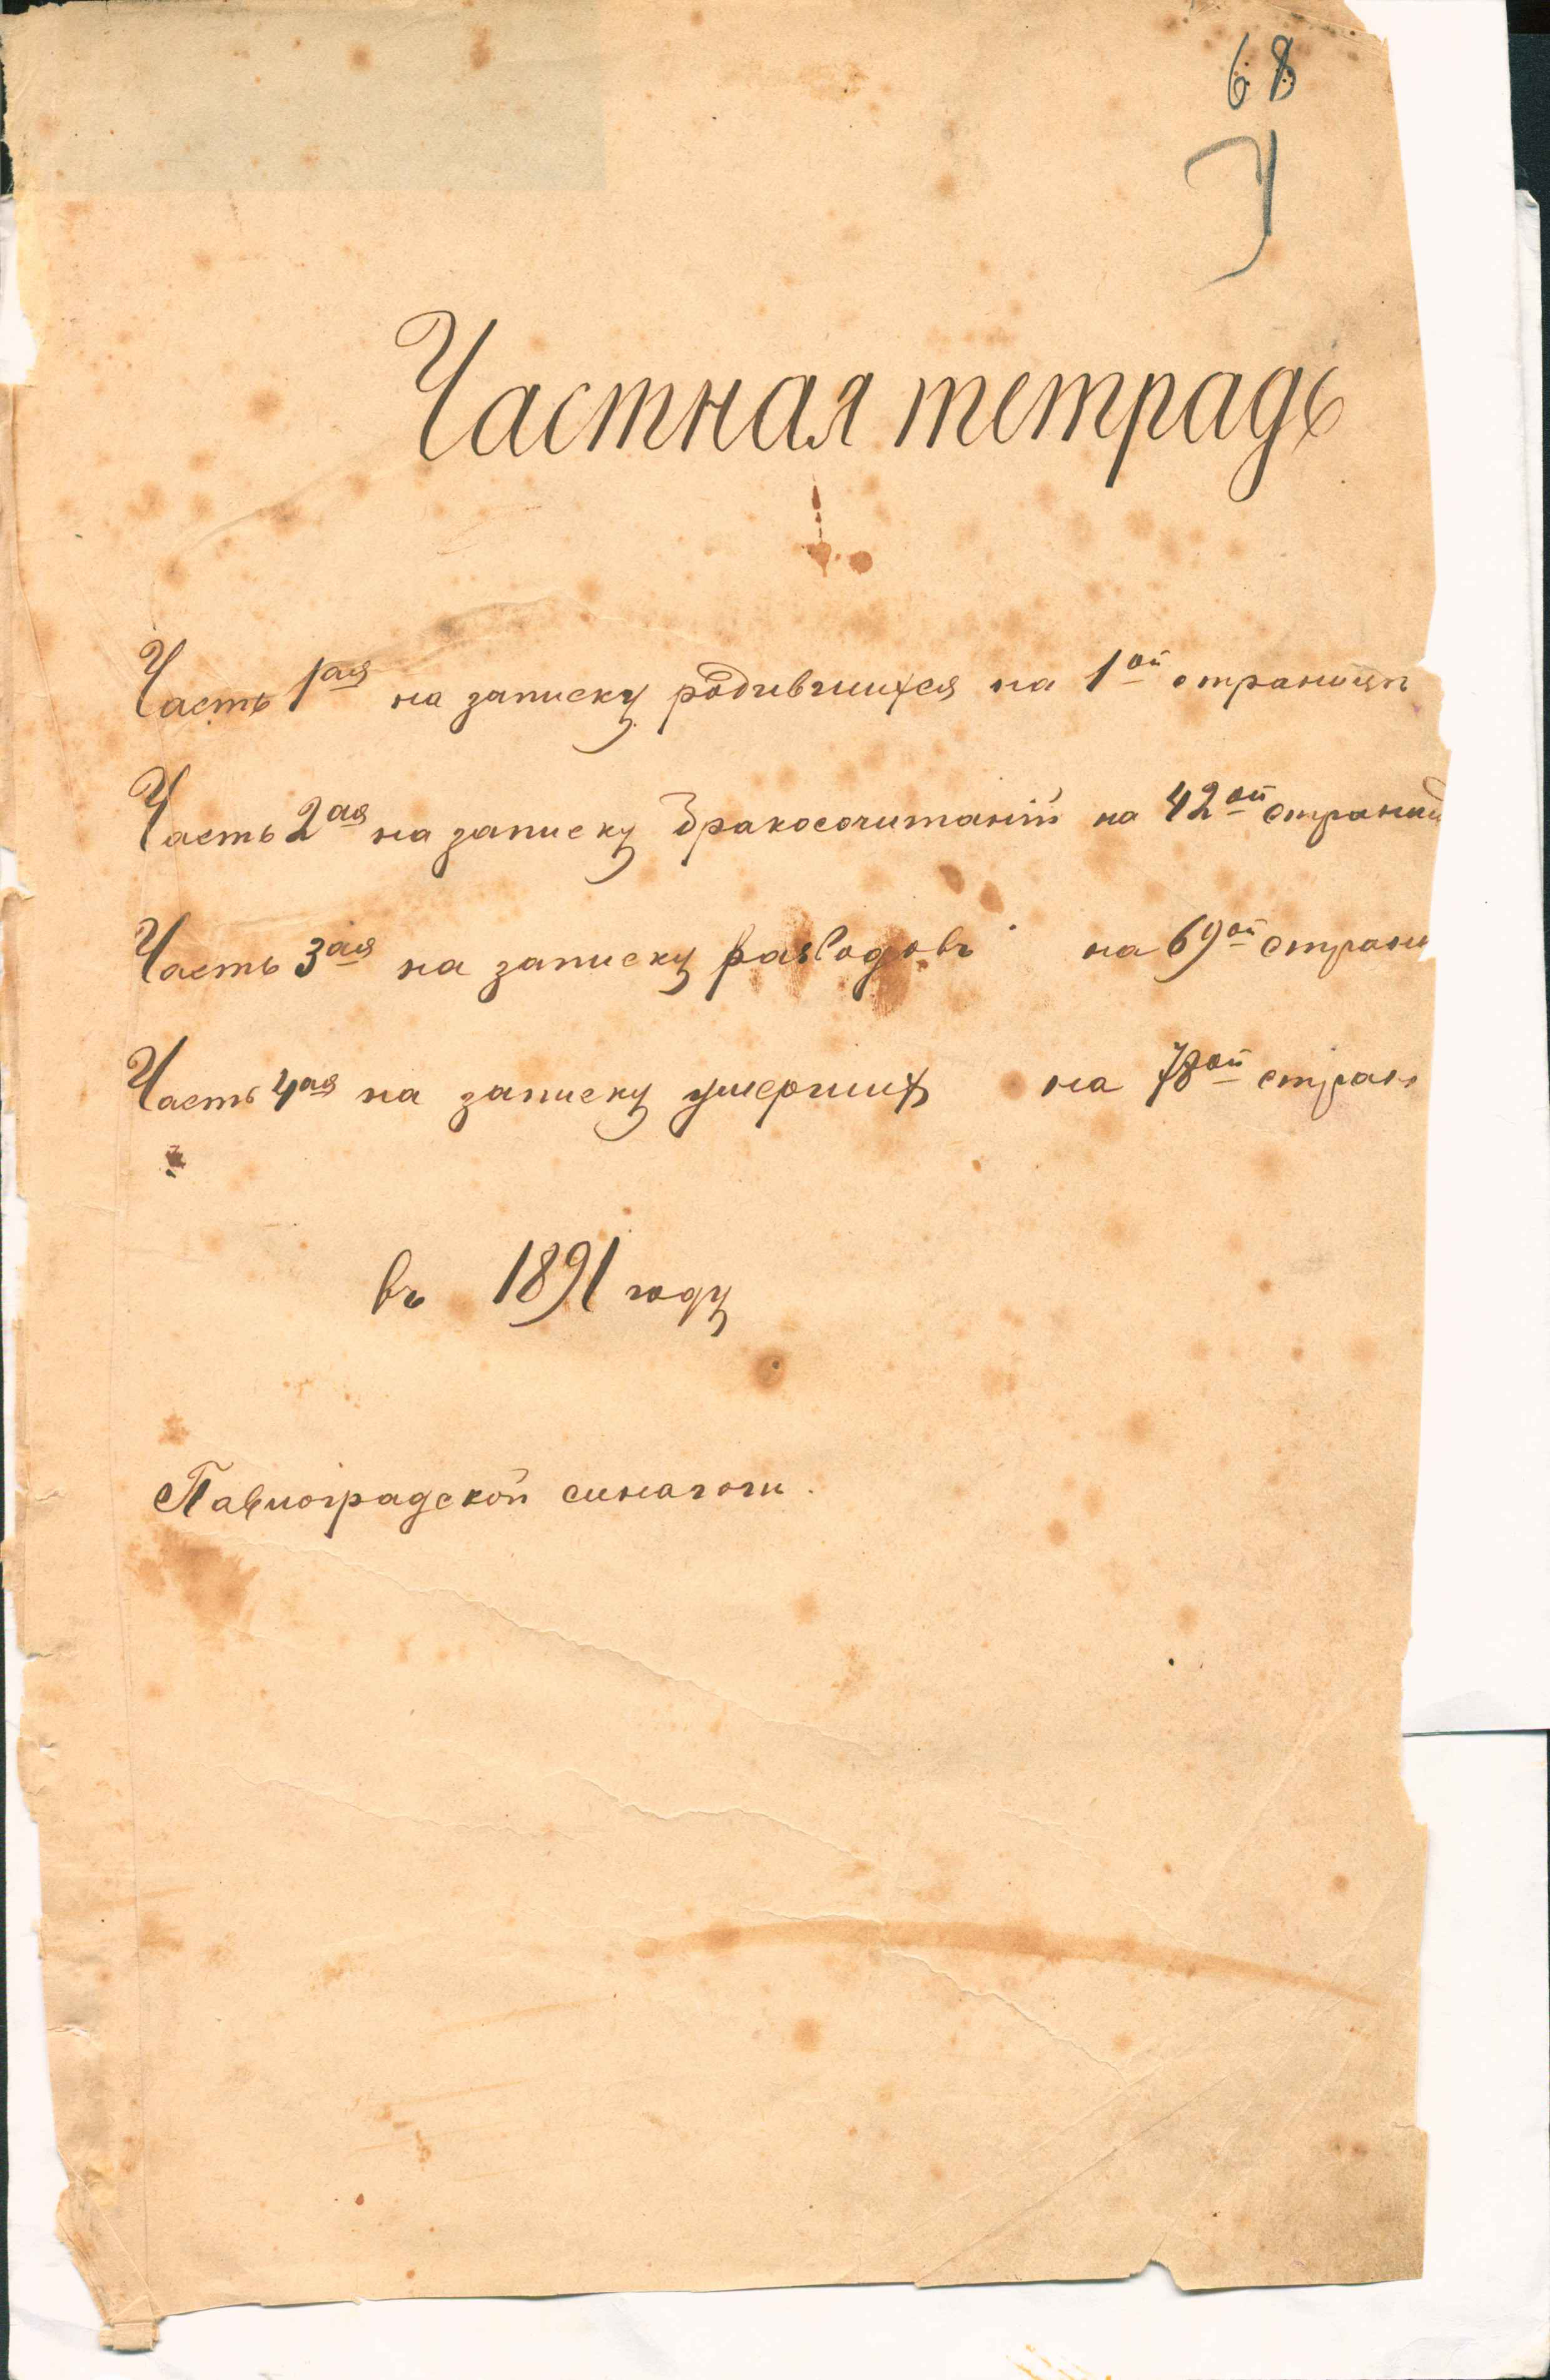 68
Частная тетрадь
Часть 1ая на записку родившихся на 1ой странице
Часть 2ая на записку бракосочитаній на 42ой страниц
Часть 3ая на записку разводовъ на 69ой стран
Часть 4ая на записку умерших на 78ой стран
въ 1891 году
Павлоградской синагоги.